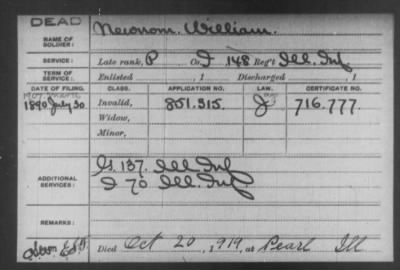 DEAD
NAME OF SOLDIER: Newsom. William.
SERVICE: Late rank, P Co. I 148 Reg't Ill. Inf
TERM OF SERVICE: Enlisted , 1 Discharged , 1
DATE OF FILING. CLASS. APPLICATION NO. LAW. CERTIFICATE NO.
1890 July 30 Invalid, 851.315. J 716.777.
Widow,
Minor,
ADDITIONAL SERVICES: G. 137. Ill Inf
I 70 Ill. Inf.
REMARKS:
Died Oct 20, 1919, at Pearl Ill